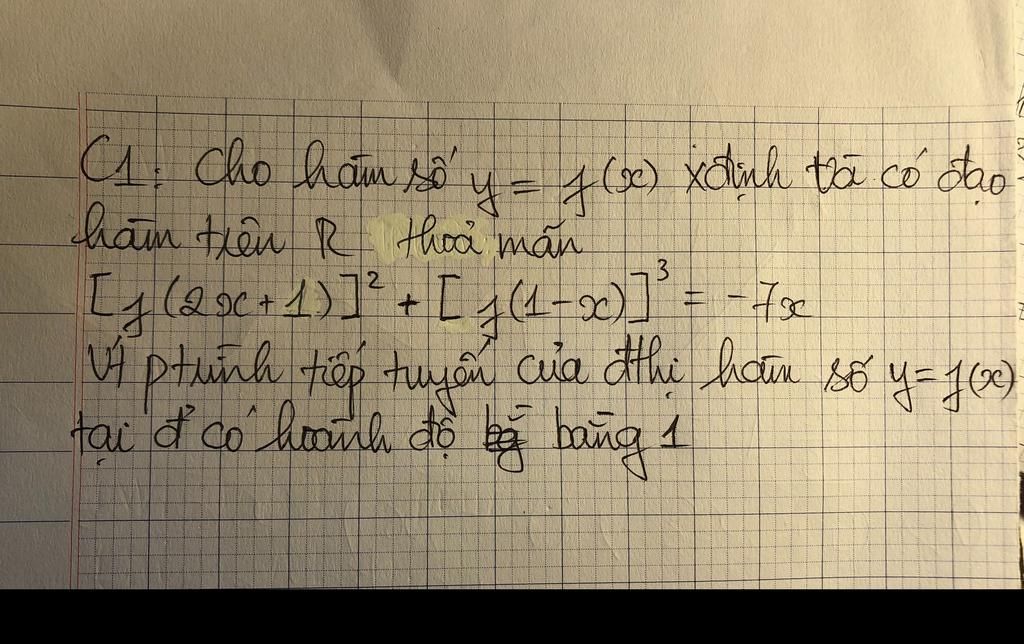 C1: Cho hàm số y = f(x) xđịnh và có đạo
hàm trên R thoả mãn
[f(2x+1)]² + [f(1-x)]³ = -7x
Vt ptrình tiếp tuyến của đthị hàm số y=f(x)
tại đ' có hoành độ bằng 1